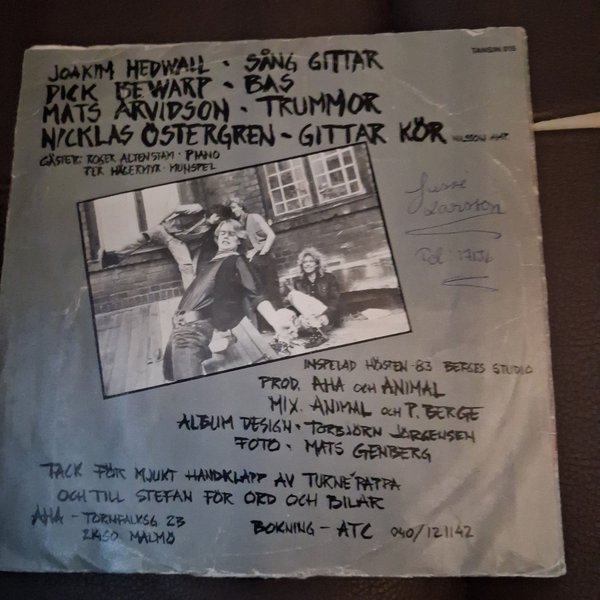 TANSIN 015
JOAKIM HEDWALL · SÅNG GITTAR
DICK BEWARP · BAS
MATS ARVIDSON · TRUMMOR
NICKLAS ÖSTERGREN - GITTAR KÖR NILSSON AMP.
GÄSTER: ROGER ALTENSTAM · PIANO
PER HÄGERMYR · MUNSPEL
Jussi
Larsson
INSPELAD HÖSTEN -83 BERGES STUDIO
PROD. AHA OCH ANIMAL
MIX. ANIMAL OCH P. BERGE
ALBUM DESIGN · TORBJÖRN JÖRGENSEN
FOTO · MATS GENBERG
TACK FÖR MJUKT HANDKLAPP AV TURNÉPAPPA
OCH TILL STEFAN FÖR ORD OCH BILAR
AHA - TORNFALKSG 2B
21450 MALMÖ
BOKNING - ATC 040/121142